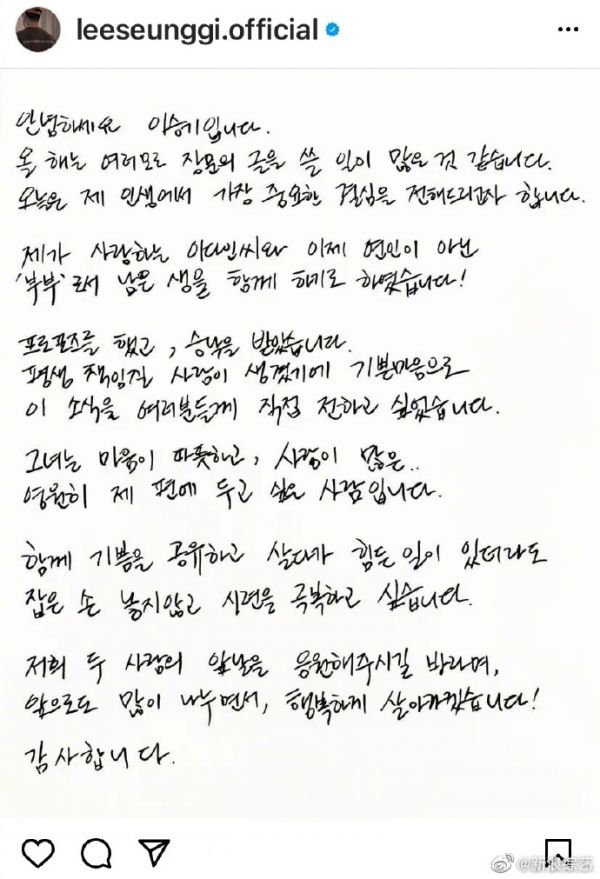 leeseunggi.official
안녕하세요 이승기입니다.
올 해는 여러모로 장문의 글을 쓸 일이 많은 것 같습니다.
오늘은 제 인생에서 가장 중요한 결심을 전해드리고자 합니다.
제가 사랑하는 이다인씨와 이제 연인이 아닌
'부부'로서 남은 생을 함께 하기로 하였습니다!
프로포즈를 했고, 승낙을 받았습니다.
평생 책임질 사람이 생겼기에 기쁜마음으로
이 소식을 여러분들께 직접 전하고 싶었습니다.
그녀는 마음이 따뜻하고, 사랑이 많은..
영원히 제 편에 두고 싶은 사람입니다.
함께 기쁨을 공유하고 살다가 힘든 일이 있더라도
잡은 손 놓지않고 시련을 극복하고 싶습니다.
저희 두 사람의 앞날을 응원해주시길 바라며,
앞으로도 많이 나누면서, 행복하게 살아가겠습니다!
감사합니다.
@新浪综艺